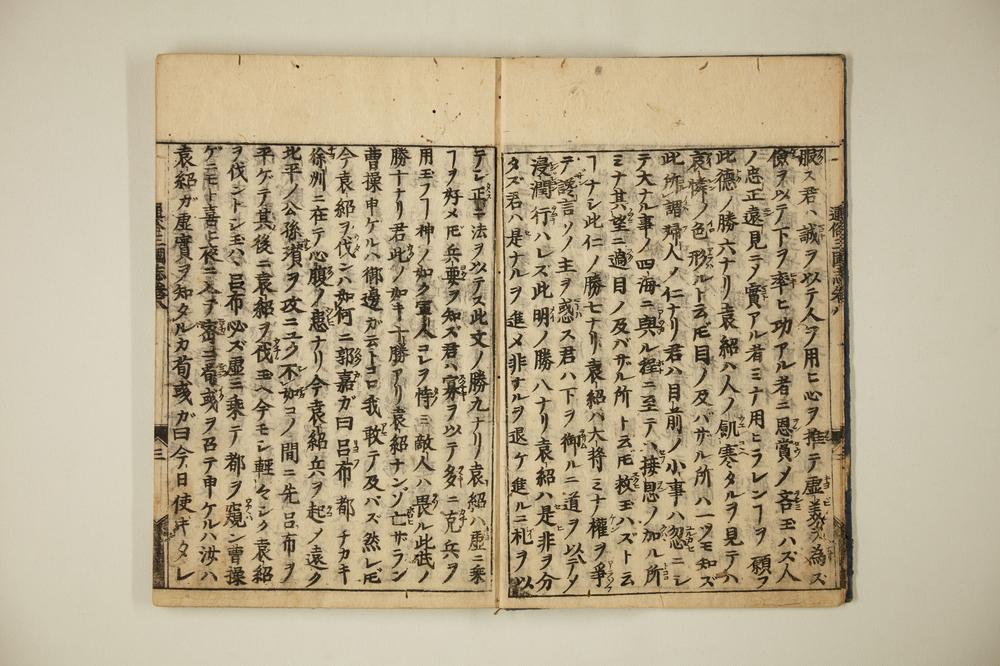 服ス君ハ誠ヲ以テ人ヲ用ヒ心ヲ推テ虚美ヲ為ズ
儉ヲ以テ下ヲ率ヒ功アル者ニ恩賞ノ吝玉ハズ人
ノ忠正遠見ニノ實アル者ミナ用ヒラレンヿヲ願フ
此德ノ勝六ナリ袁紹ハ人ノ飢寒タルヲ見テハ
哀憐ノ色形ルト云𪜈目ノ及バサル所ハ一ツモ知ズ
此所謂婦人ノ仁ナリ君ハ目前ノ小事ハ忽ニシ
テ大ナル事ノ四海ニ與ル程ニ至テハ接恩ノ加ル所
ミナ其望ニ適目ノ及バサル所ト云𪜈救玉ハズト云
ヿナシ此仁ノ勝七ナリ袁紹ハ大将ミナ權ヲ爭
テ讒言ソノ主ヲ惑ス君ハ下ヲ御ルニ道ヲ以テノ
浸潤行ハレズ此明ノ勝八ナリ袁紹ハ是非ヲ分
タズ君ハ是ナルヲ進メ非ナルヲ退ケ進ルニ礼ヲ以
テシ正ニ法ヲ以テス此文ノ勝九ナリ袁紹ハ虚ニ乘
ヿヲ好メ𪜈兵要ヲ知ズ君ハ寡ヲ以テ多ニ克兵ヲ
用玉フヿ神ノ如ク軍人コレヲ恃ミ敵人ハ畏ル此武ノ
勝十ナリ君此ノ如キ十勝アリ袁紹ナンゾ亡ザラン
曹操申ケルハ御邊ガ云トコロ我敢テ及バズ然レ𪜈
今袁紹ヲ伐ンハ如何ニ郭嘉ガ曰吕布都チカキ
徐州ニ在テ心腹ノ患ナリ今袁紹兵ヲ起ノ遠ク
北平ノ公孫瓚ヲ攻ニユク不如コノ間ニ先吕布ヲ
平ゲテ其後ニ袁紹ヲ伐玉ヘ今モシ輕々シク袁紹
ヲ伐ントシ玉ハ吕布必ズ虚ニ乘テ都ヲ窺ン曹操
ゲニモト喜ヒ夜ニ入テ密ニ荀彧ヲ召テ申ケルハ汝ハ
袁紹ガ虚實ヲ知タルカ荀彧ガ曰今日使ギタレ